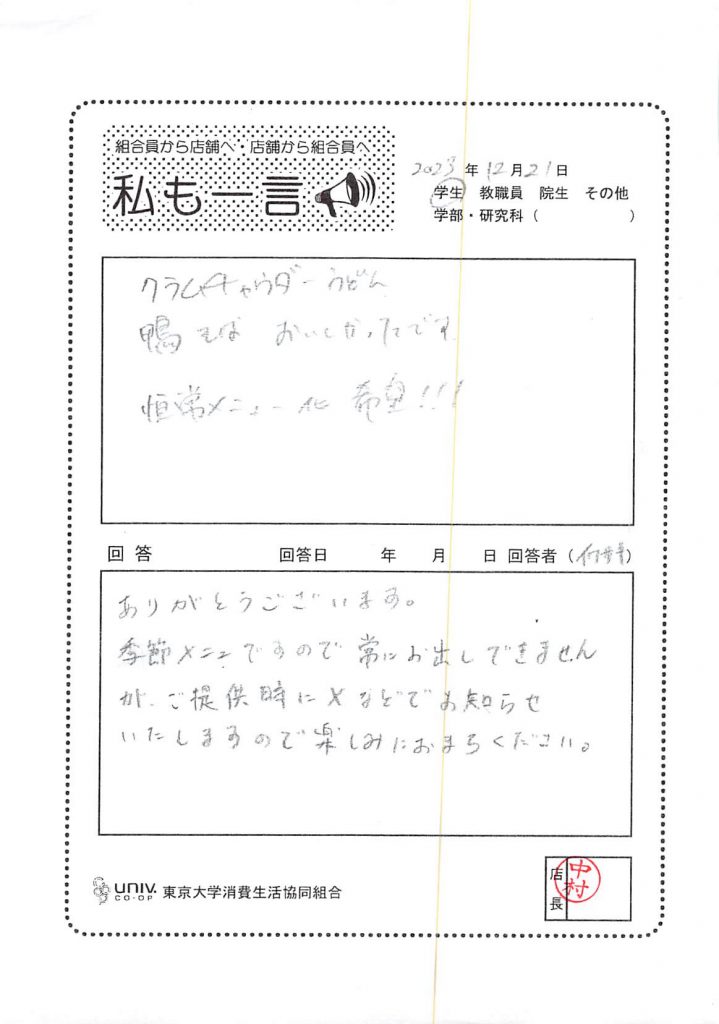 組合員から店舗へ・店舗から組合員へ
私も一言
2023年12月21日
学生 教職員 院生 その他
学部・研究科（　　　　）
クラムチャウダーうどん
鴨そば おいしかったです
恒常メニュー化 希望!!!
回答 回答日 年 月 日 回答者（　）
ありがとうございます。
季節メニューですので常にお出しできません
が、ご提供時にXなどでお知らせ
いたしますので楽しみにおまちください。
UNIV.
CO-OP
東京大学消費生活協同組合
店長
中村